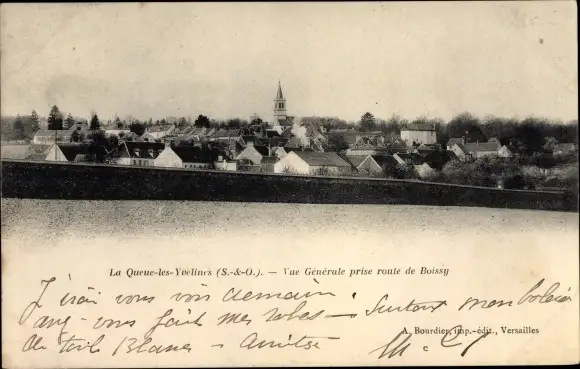 La Queue-les-Yvelines (S.-&-O.). — Vue Générale prise route de Boissy
J'irai vous voir demain. Surtout mon
vous fait mes robes —
de toile Blanc — Amitiés
A. Bourdier, imp.-édit., Versailles